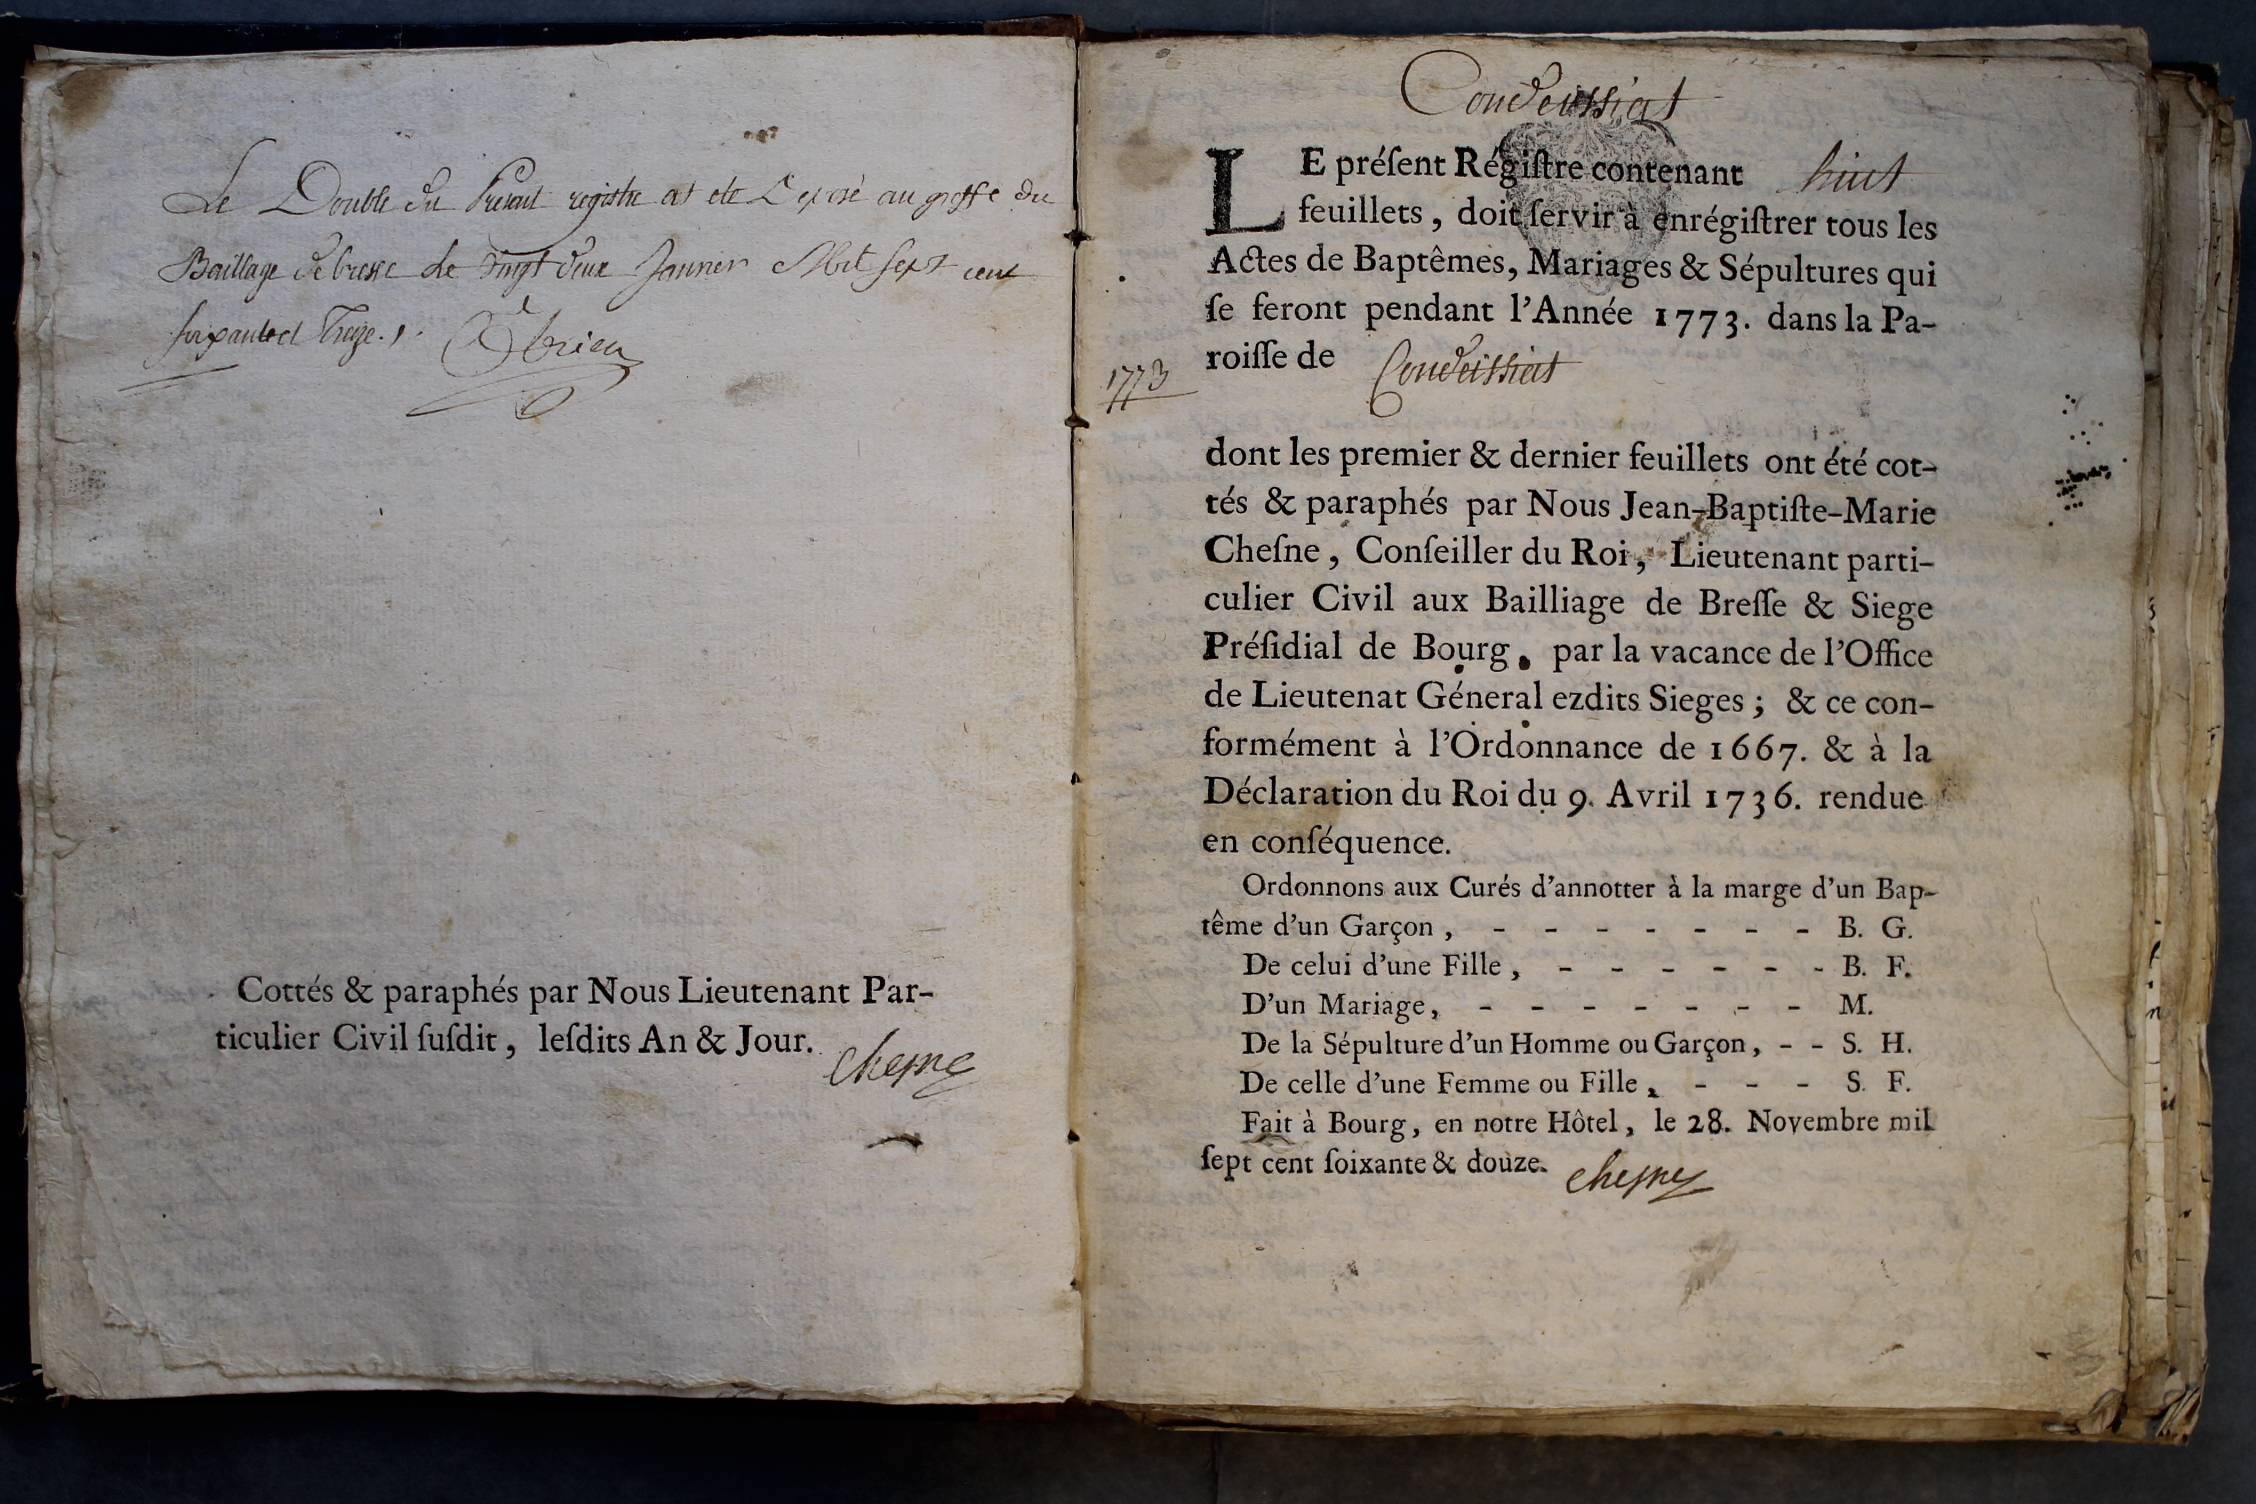 Le Double du Present registre at ete Deposé au greffe du
Bailliage de bresse Le Vingt deux Janvier Mil sept cent
soixante et Treize.
Cottés & paraphés par Nous Lieutenant Par-
ticulier Civil ſuſdit, leſdits An & Jour.
Chesne
Condeissiat
LE préſent Régiſtre contenant huit
feuillets, doit ſervir à enrégiſtrer tous les
Actes de Baptêmes, Mariages & Sépultures qui
ſe feront pendant l'Année 1773. dans la Pa-
1773
roiſſe de Condeissiat
dont les premier & dernier feuillets ont été cot-
tés & paraphés par Nous Jean-Baptiſte-Marie
Cheſne, Conſeiller du Roi, Lieutenant parti-
culier Civil aux Bailliage de Breſſe & Siege
Préſidial de Bourg, par la vacance de l'Office
de Lieutenat Géneral ezdits Sieges; & ce con-
formément à l'Ordonnance de 1667. & à la
Déclaration du Roi du 9. Avril 1736. rendue
en conſéquence.
Ordonnons aux Curés d'annotter à la marge d'un Bap-
tême d'un Garçon, - - - - - - - B. G.
De celui d'une Fille, - - - - - - B. F.
D'un Mariage, - - - - - - - M.
De la Sépulture d'un Homme ou Garçon, - - S. H.
De celle d'une Femme ou Fille, - - - S. F.
Fait à Bourg, en notre Hôtel, le 28. Novembre mil
ſept cent ſoixante & douze.
Chesne